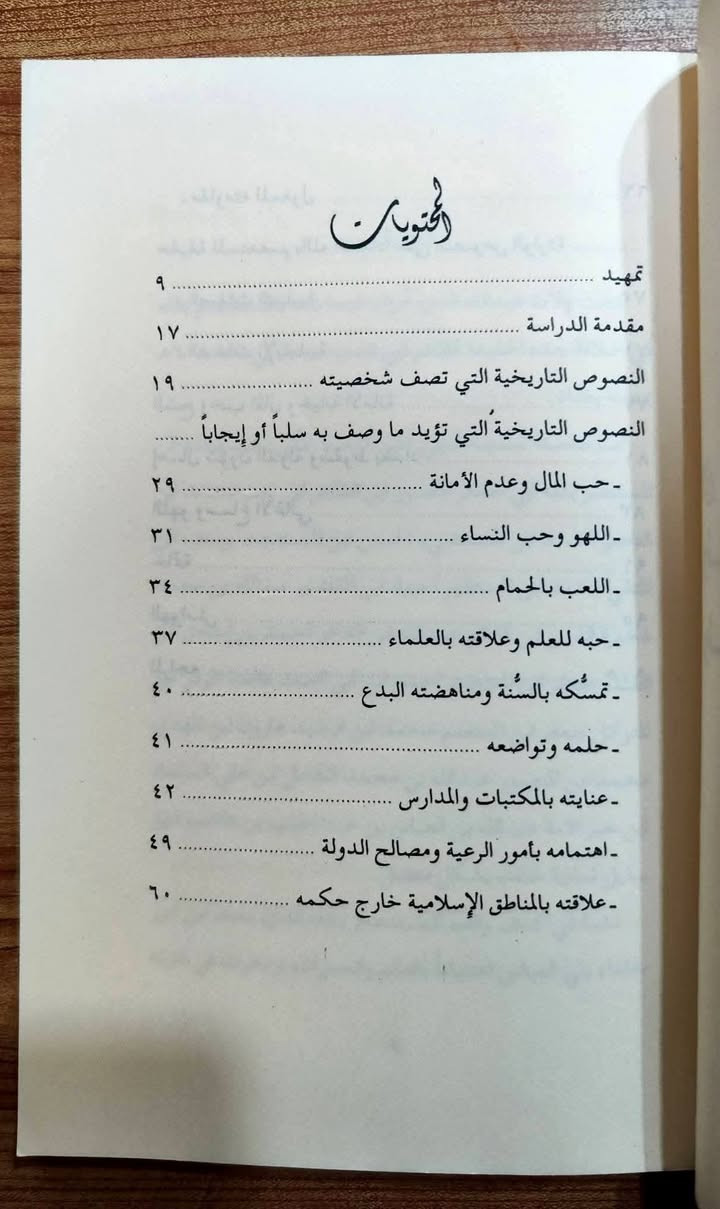 المحتويات
تمهيد ........ ٩
مقدمة الدراسة ........ ١٧
النصوص التاريخية التي تصف شخصيته ........ ١٩
النصوص التاريخية التي تؤيد ما وصف به سلباً أو إيجاباً ........
ـ حب المال وعدم الأمانة ........ ٢٩
ـ اللهو وحب النساء ........ ٣١
ـ اللعب بالحمام ........ ٣٤
ـ حبه للعلم وعلاقته بالعلماء ........ ٣٧
ـ تمسُّكه بالسُّنة ومناهضته البدع ........ ٤٠
ـ حلمه وتواضعه ........ ٤١
ـ عنايته بالمكتبات والمدارس ........ ٤٢
ـ اهتمامه بأمور الرعية ومصالح الدولة ........ ٤٩
ـ علاقته بالمناطق الإسلامية خارج حكمه ........ ٦٠